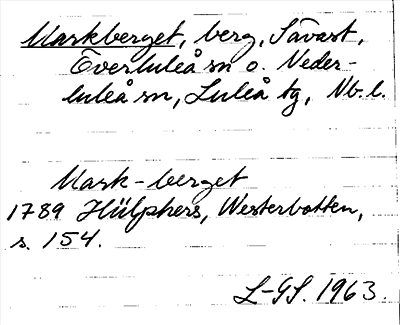 Markberget, berg, Sävast,
Överluleå sn o. Neder-
luleå sn, Luleå tg, Nb. l.
Mark-berget
1789 Hülphers, Westerbotten,
s. 154.
L-GS. 1963.